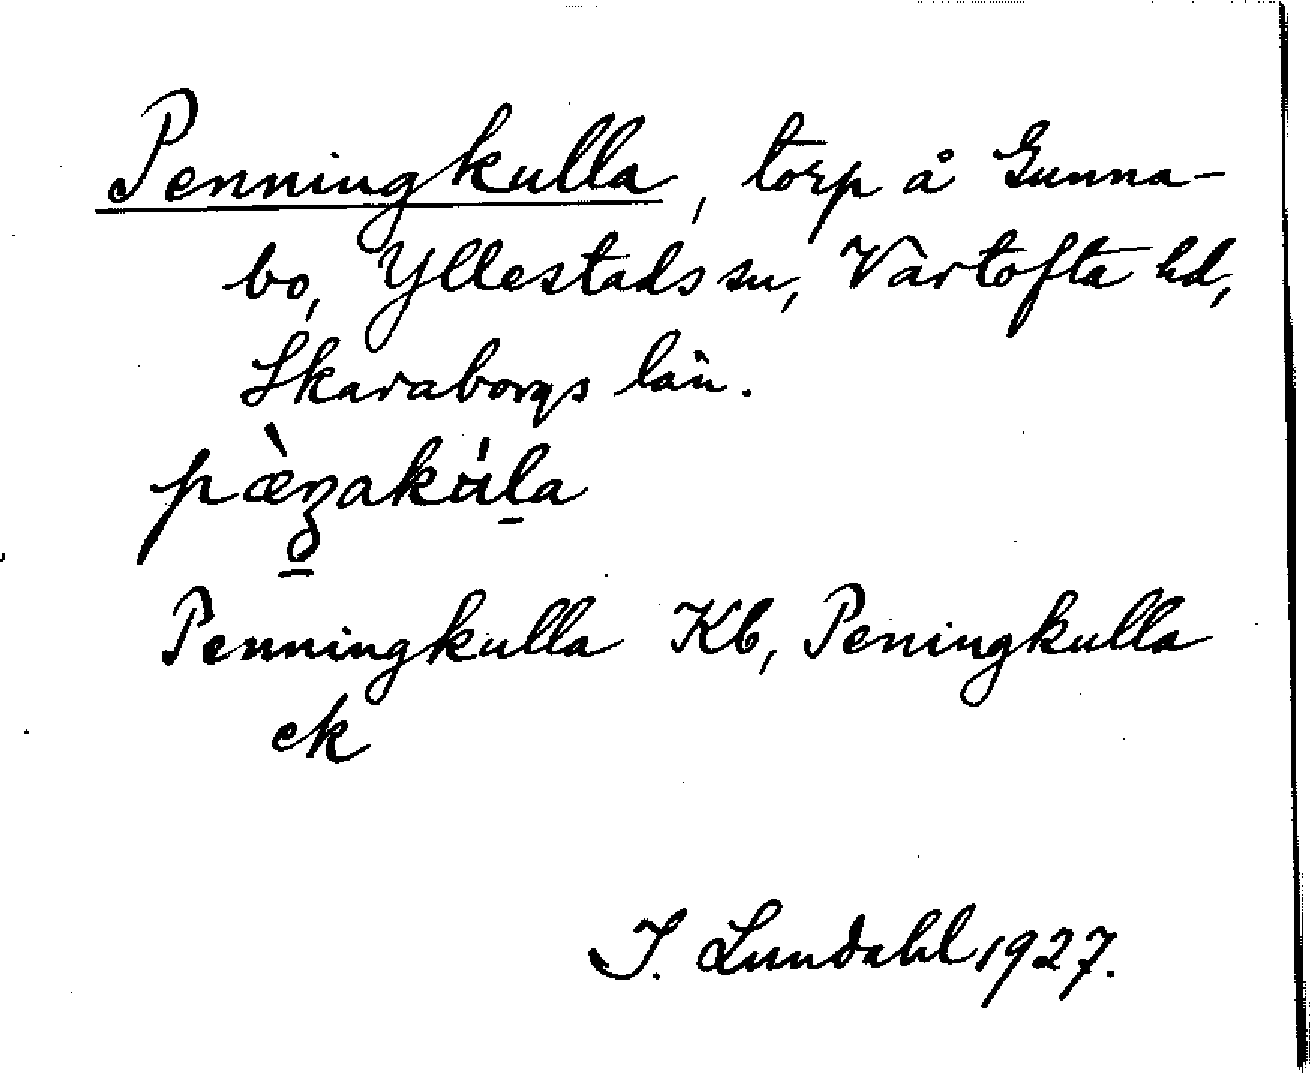 Penningkulla, torp å Gunna-
bo, Yllestads sn, Vartofta hd,
Skaraborgs län.
pæ̀ꜫakúla
Penningkulla Kb, Peningkulla
ek
I. Lundahl 1927.